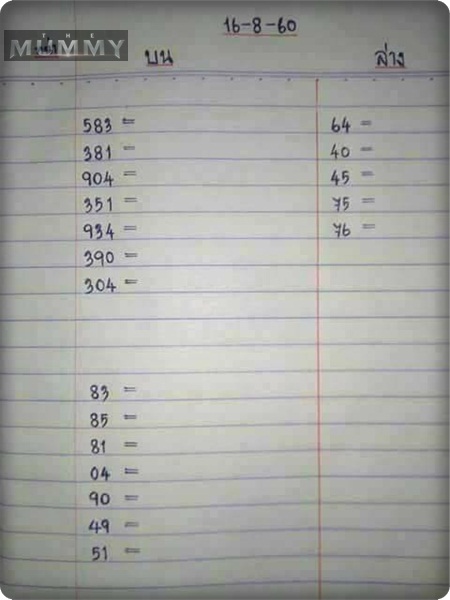 16-8-60
THE
MUMMY
บน ล่าง
583 = 64 =
381 = 40 =
904 = 45 =
351 = 75 =
934 = 76 =
390 =
304 =
83 =
85 =
81 =
04 =
90 =
49 =
51 =